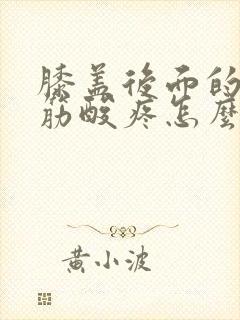 膝盖後面的
筋酸疼怎麼
黄小波